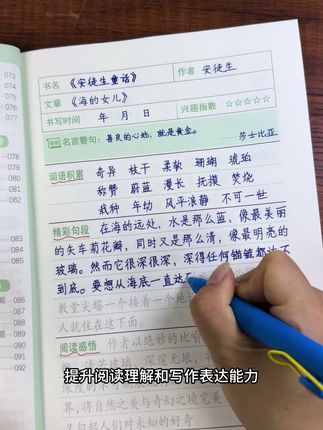 073
074
075
076
077
078
079
书名 《安徒生童话》 作者 安徒生
文章 《海的女儿》
书写时间 年 月 日 兴趣指数 ☆☆☆☆☆
名言警句：善良的心地，就是黄金。
莎士比亚
词语积累 奇异 枝干 柔软 珊瑚 琥珀
称赞 蔚蓝 漫长 抚摸 焚烧
戒种 年幼 风平浪静 不可一世
精彩句段 在海的远处，水是那么蓝，像最美丽
的矢车菊花瓣，同时又是那么清，像最明亮的
玻璃。然而它很深很深，深得任何锚链都达不
到底。要想从海底一直达到
教堂尖塔一个接着一个地
人就住在这下面
阅读感悟 作者以绝妙的比喻
深邃无垠
界，将自然之美与奇幻之境完美
起人们对未知的好奇。
081
082
083
084
085
086
087
088
090
091
092
提升阅读理解和写作表达能力